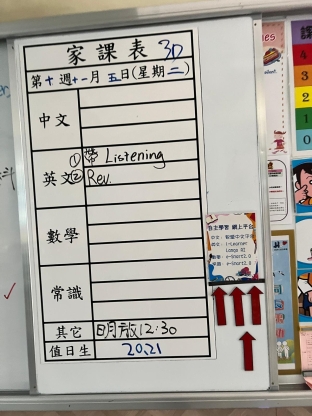 家課表 3D
第十週十一月五日(星期二)
中文
① 帶 Listening
英文② Rev.
數學
常識
其它 明放12:30
值日生 20,21
自主學習 網上平台
課
4
3
2
1
0